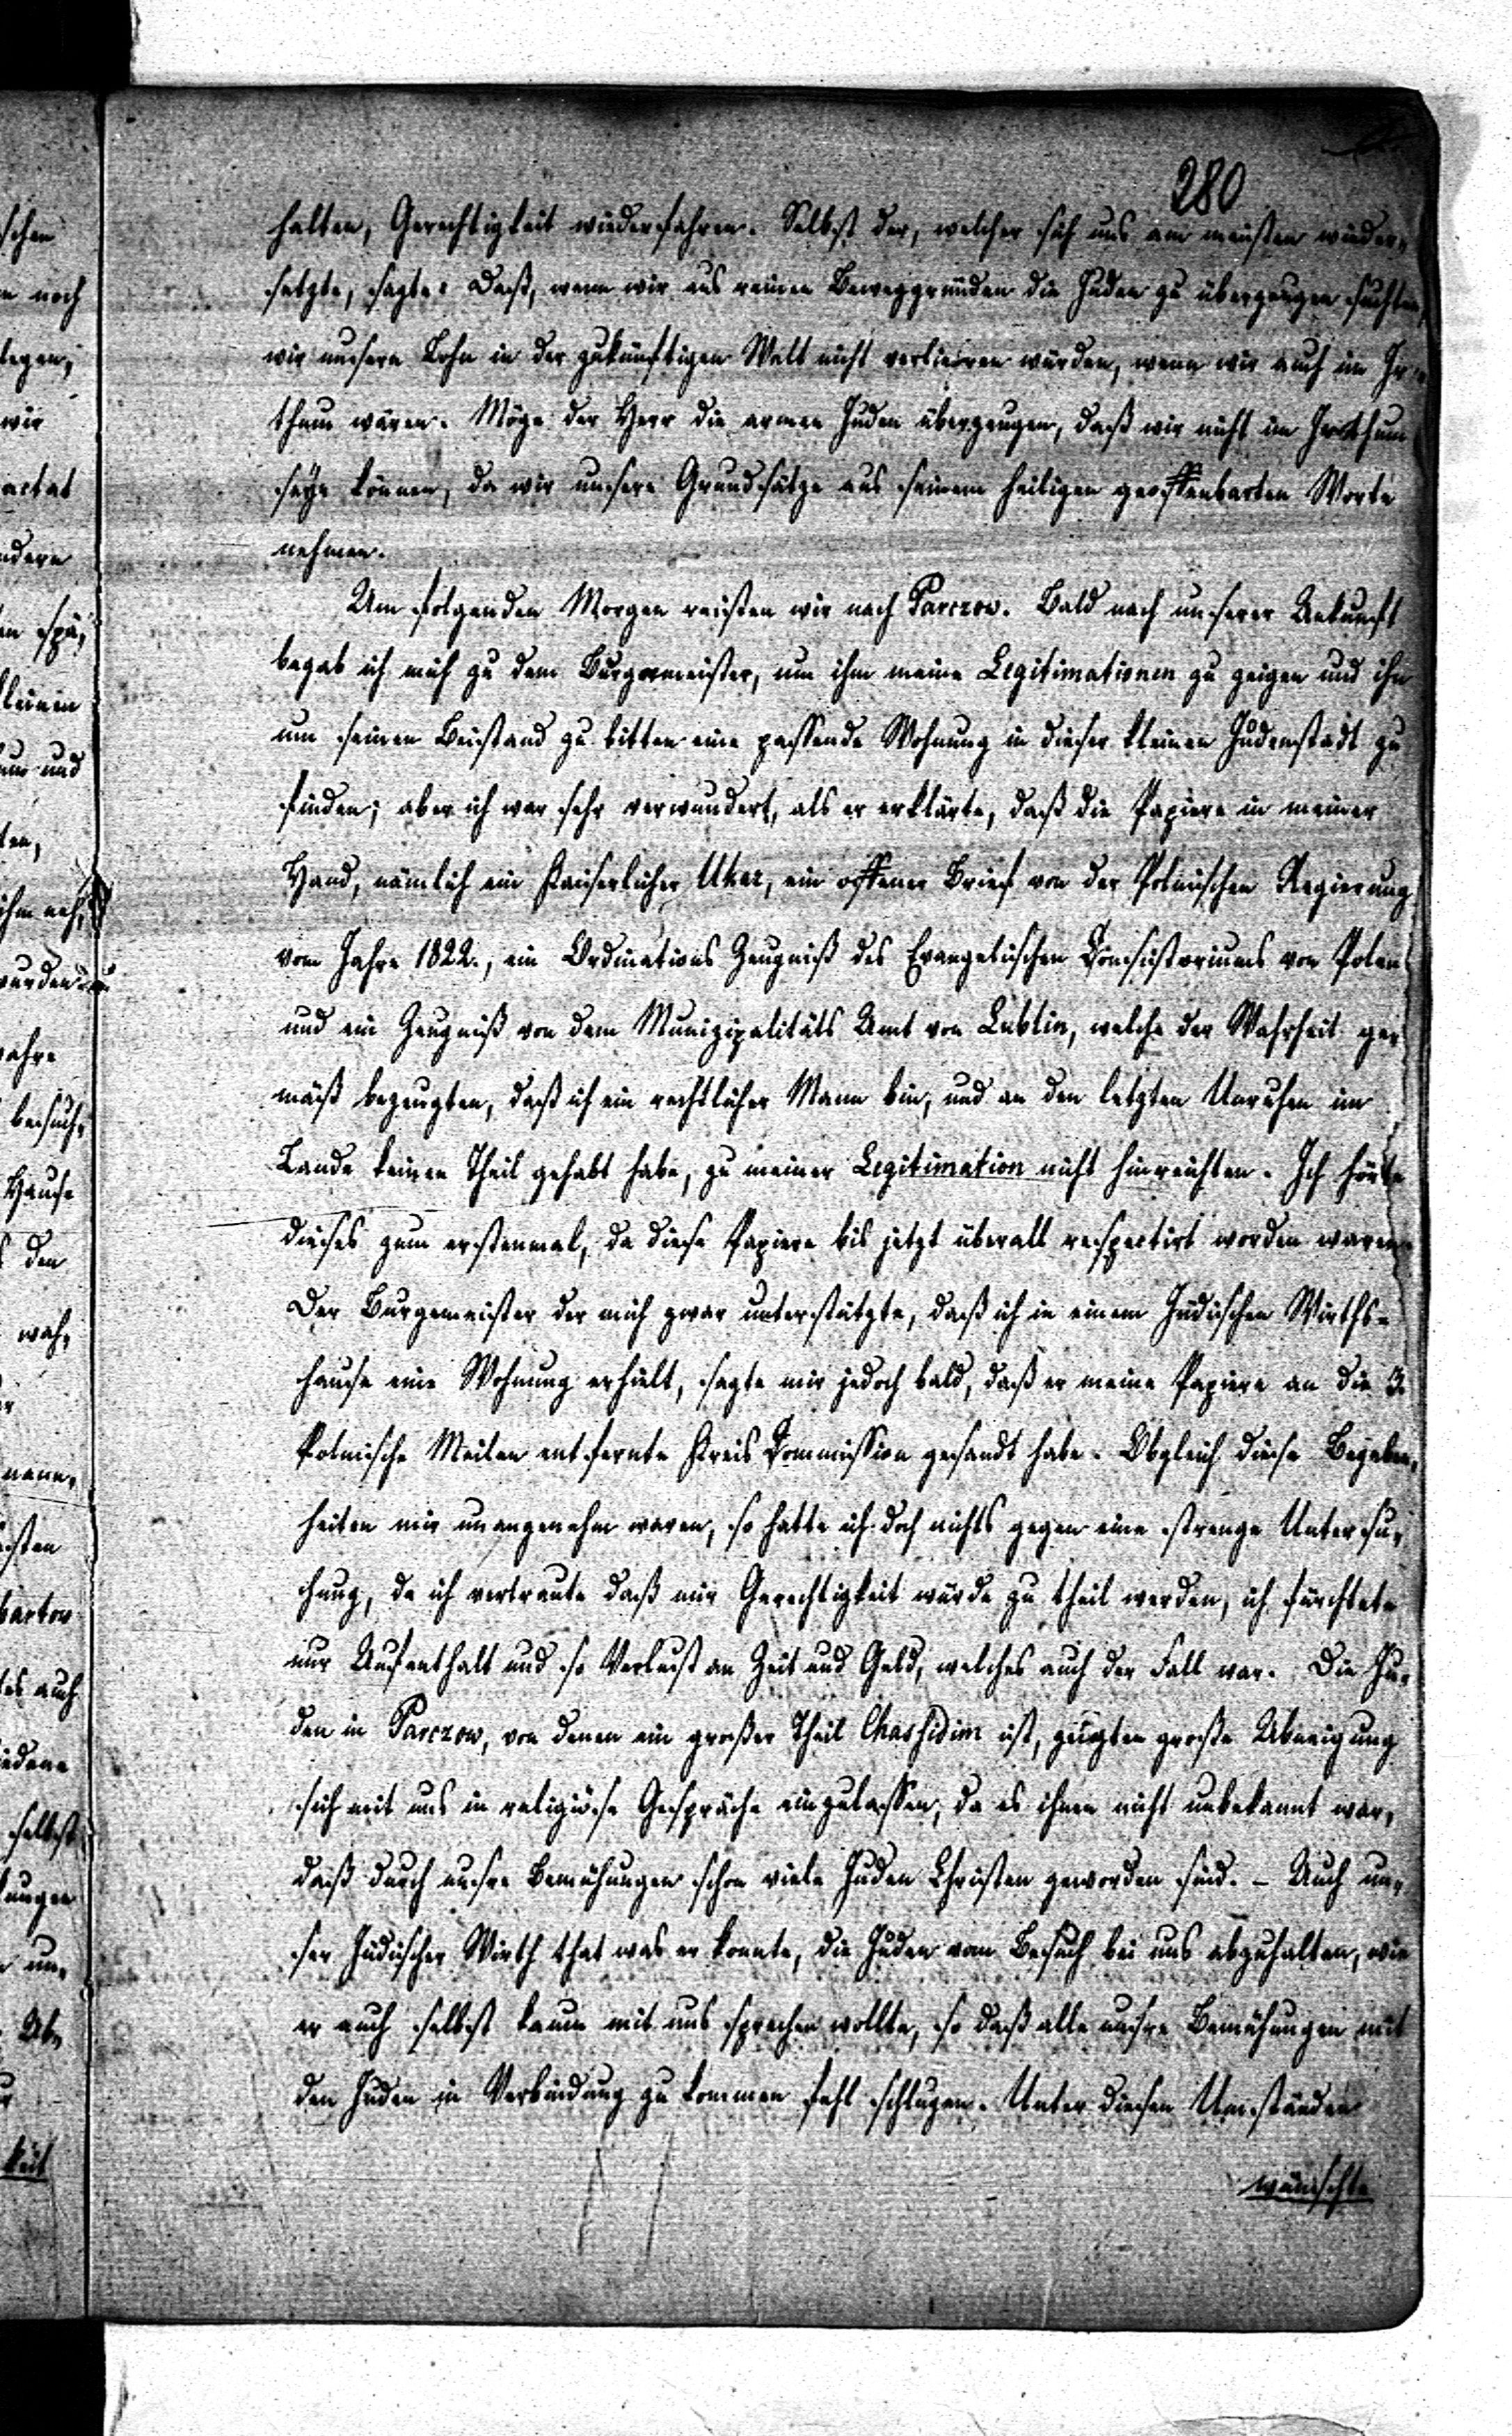 280
halten, Gerechtigkeit wiederfahren. Selbst der, welcher sich uns am meisten wieder-
setzte, sagte: Daß, wenn wir aus reinen Beweggründen die Juden zu überzeugen suchten,
wir unsern Lohn in der zukünftigen Welt nicht verlieren würden, wenn wir auch im Ir-
thum wären. Möge der Herr die armen Juden überzeugen, daß wir nicht im Irrthum
seyn können, da wir unsere Grundsätze aus seinem heiligen geoffenbarten Worte
nehmen.
Am folgenden Morgen reisten wir nach Parczow. Bald nach unserer Ankunft
begab ich mich zu dem Burgemeister, um ihm meine Legitimationen zu zeigen und ihn
um seinen Beistand zu bitten eine passende Wohnung in dieser kleinen Judenstadt zu
finden; aber ich war sehr verwundert, als er erklärte, daß die Papiere in meiner
Hand, nämlich ein Kaiserlicher Ukas, ein offener Brief von der Polnischen Regierung
vom Jahre 1822., ein Ordinations Zeugniß des Evangelischen Consistoriums von Polen
und ein Zeugniß von dem Munizipalitäts Amt von Lublin, welche der Wahrheit ge-
mäß bezeugten, daß ich ein rechtlicher Mann bin, und an den letzten Unruhen im
Lande keinen Theil gehabt habe, zu meiner Legitimation nicht hinreichten. Ich hörte
dieses zum erstenmal, da diese Papiere bis jetzt überall respectirt worden waren.
Der Burgemeister der mich zwar unterstützte, daß ich in einem Jüdischen Wirths-
hause eine Wohnung erhielt, sagte mir jedoch bald, daß er meine Papiere an die 3.
Polnische Meilen entfernte Kreis Commission gesandt habe. Obgleich diese Begeben-
heiten mir unangenehm waren, so hatte ich doch nichts gegen eine strenge Untersu-
chung, da ich vertraute daß mir Gerechtigkeit würde zu theil werden, ich fürchtete
nur Aufenthalt und so Verlust an Zeit und Geld, welches auch der Fall war. Die Ju-
den in Parczow, von denen ein großer Theil Chassidim ist, zeigten große Abneigung
sich mit uns in religiöse Gespräche einzulassen, da es ihnen nicht unbekannt war,
daß durch unsre Bemühungen schon viele Juden Christen geworden sind. – Auch un-
ser Jüdischer Wirth that was er konnte, die Juden vom Besuch bei uns abzuhalten, wie
er auch selbst kaum mit uns sprechen wollte, so daß alle unsre Bemühungen mit
den Juden in Verbindung zu kommen fehl schlugen. Unter diesen Umständen
wünschte